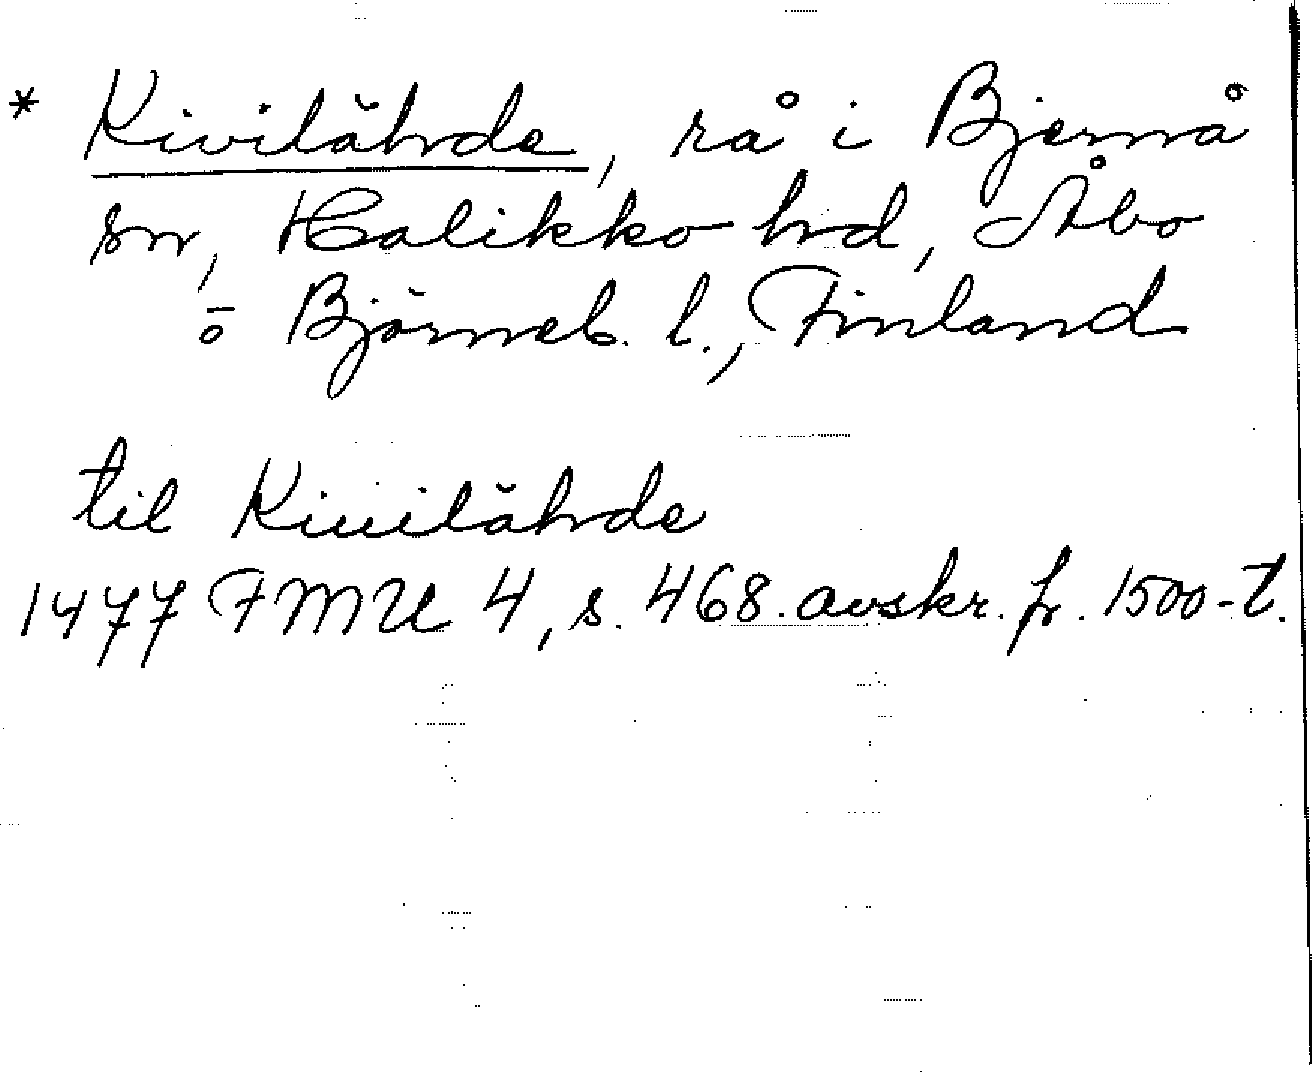 * Kivilähde, rå i Bjernå
sn, Halikko hd, Åbo
o Björneb. l., Finland
til Kiuilähde
1477 FMU 4, s. 468. avskr. fr. 1500-t.